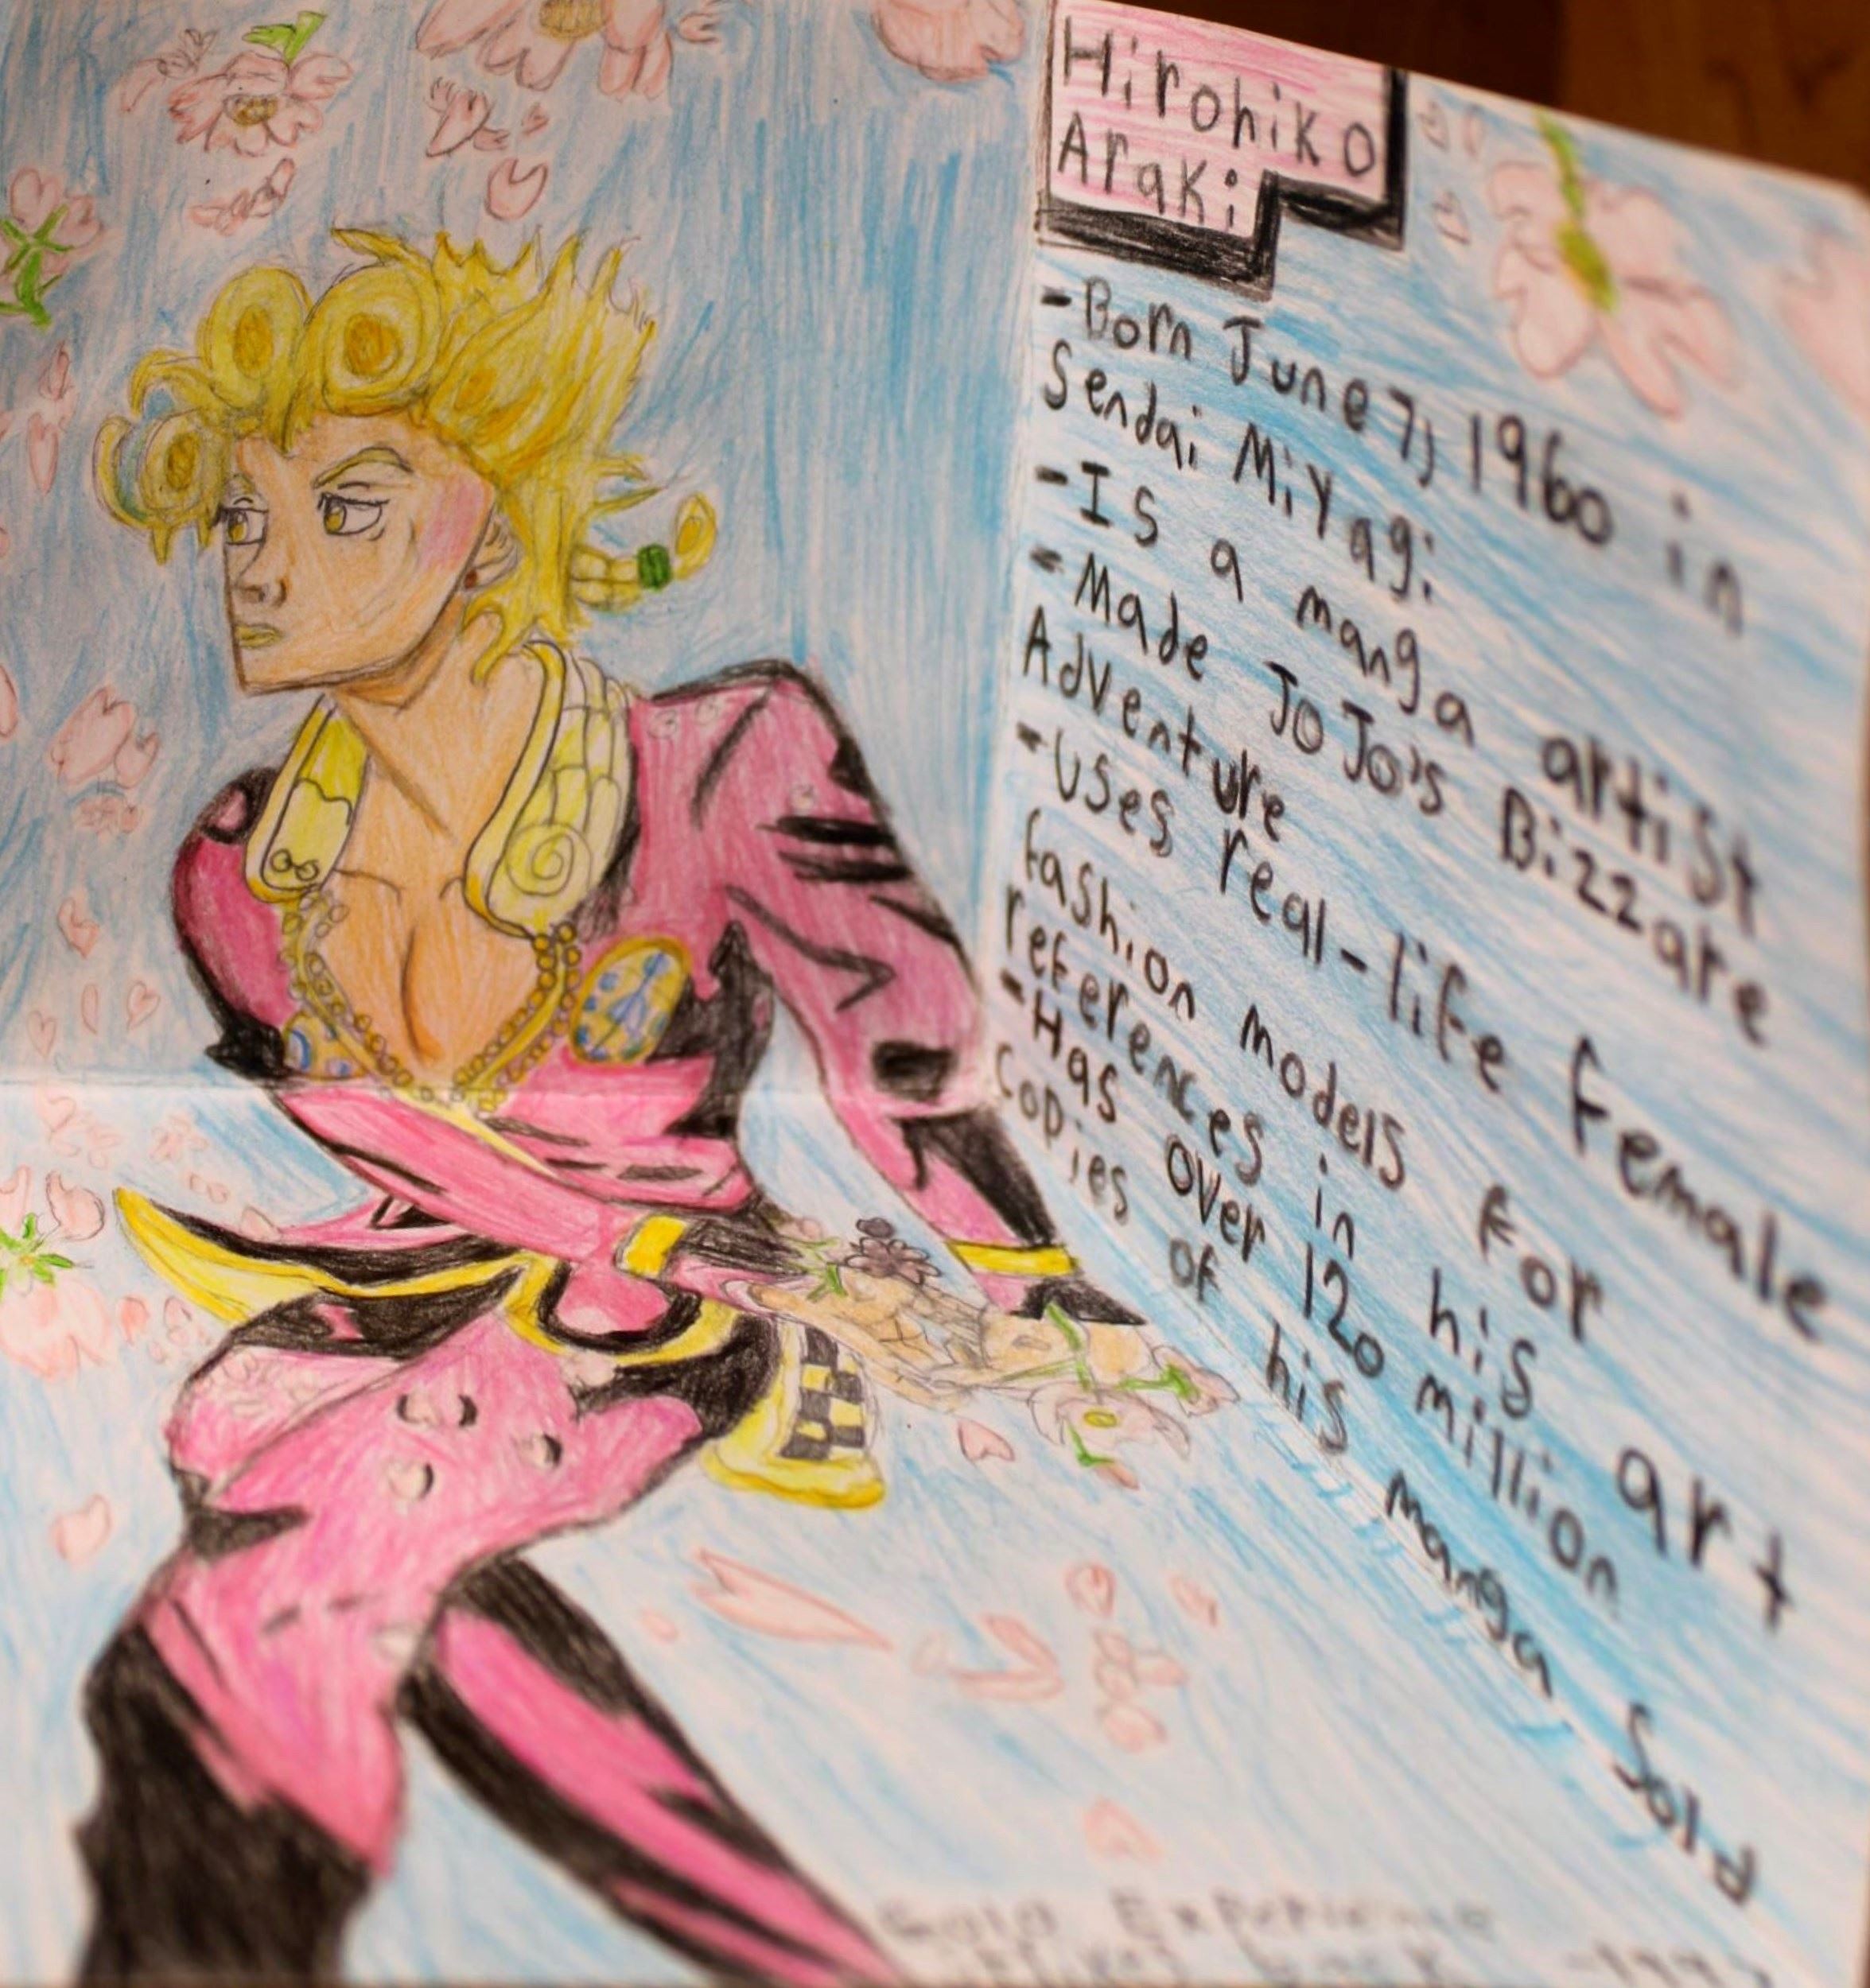 Hirohiko
Araki
-Born June 7, 1960 in
Sendai Miyagi
-Is a manga artist
-Made JoJo's Bizzare
Adventure
-Uses real-life female
fashion models for
references in his art
-Has over 120 million
copies of his manga sold
Gold Experience